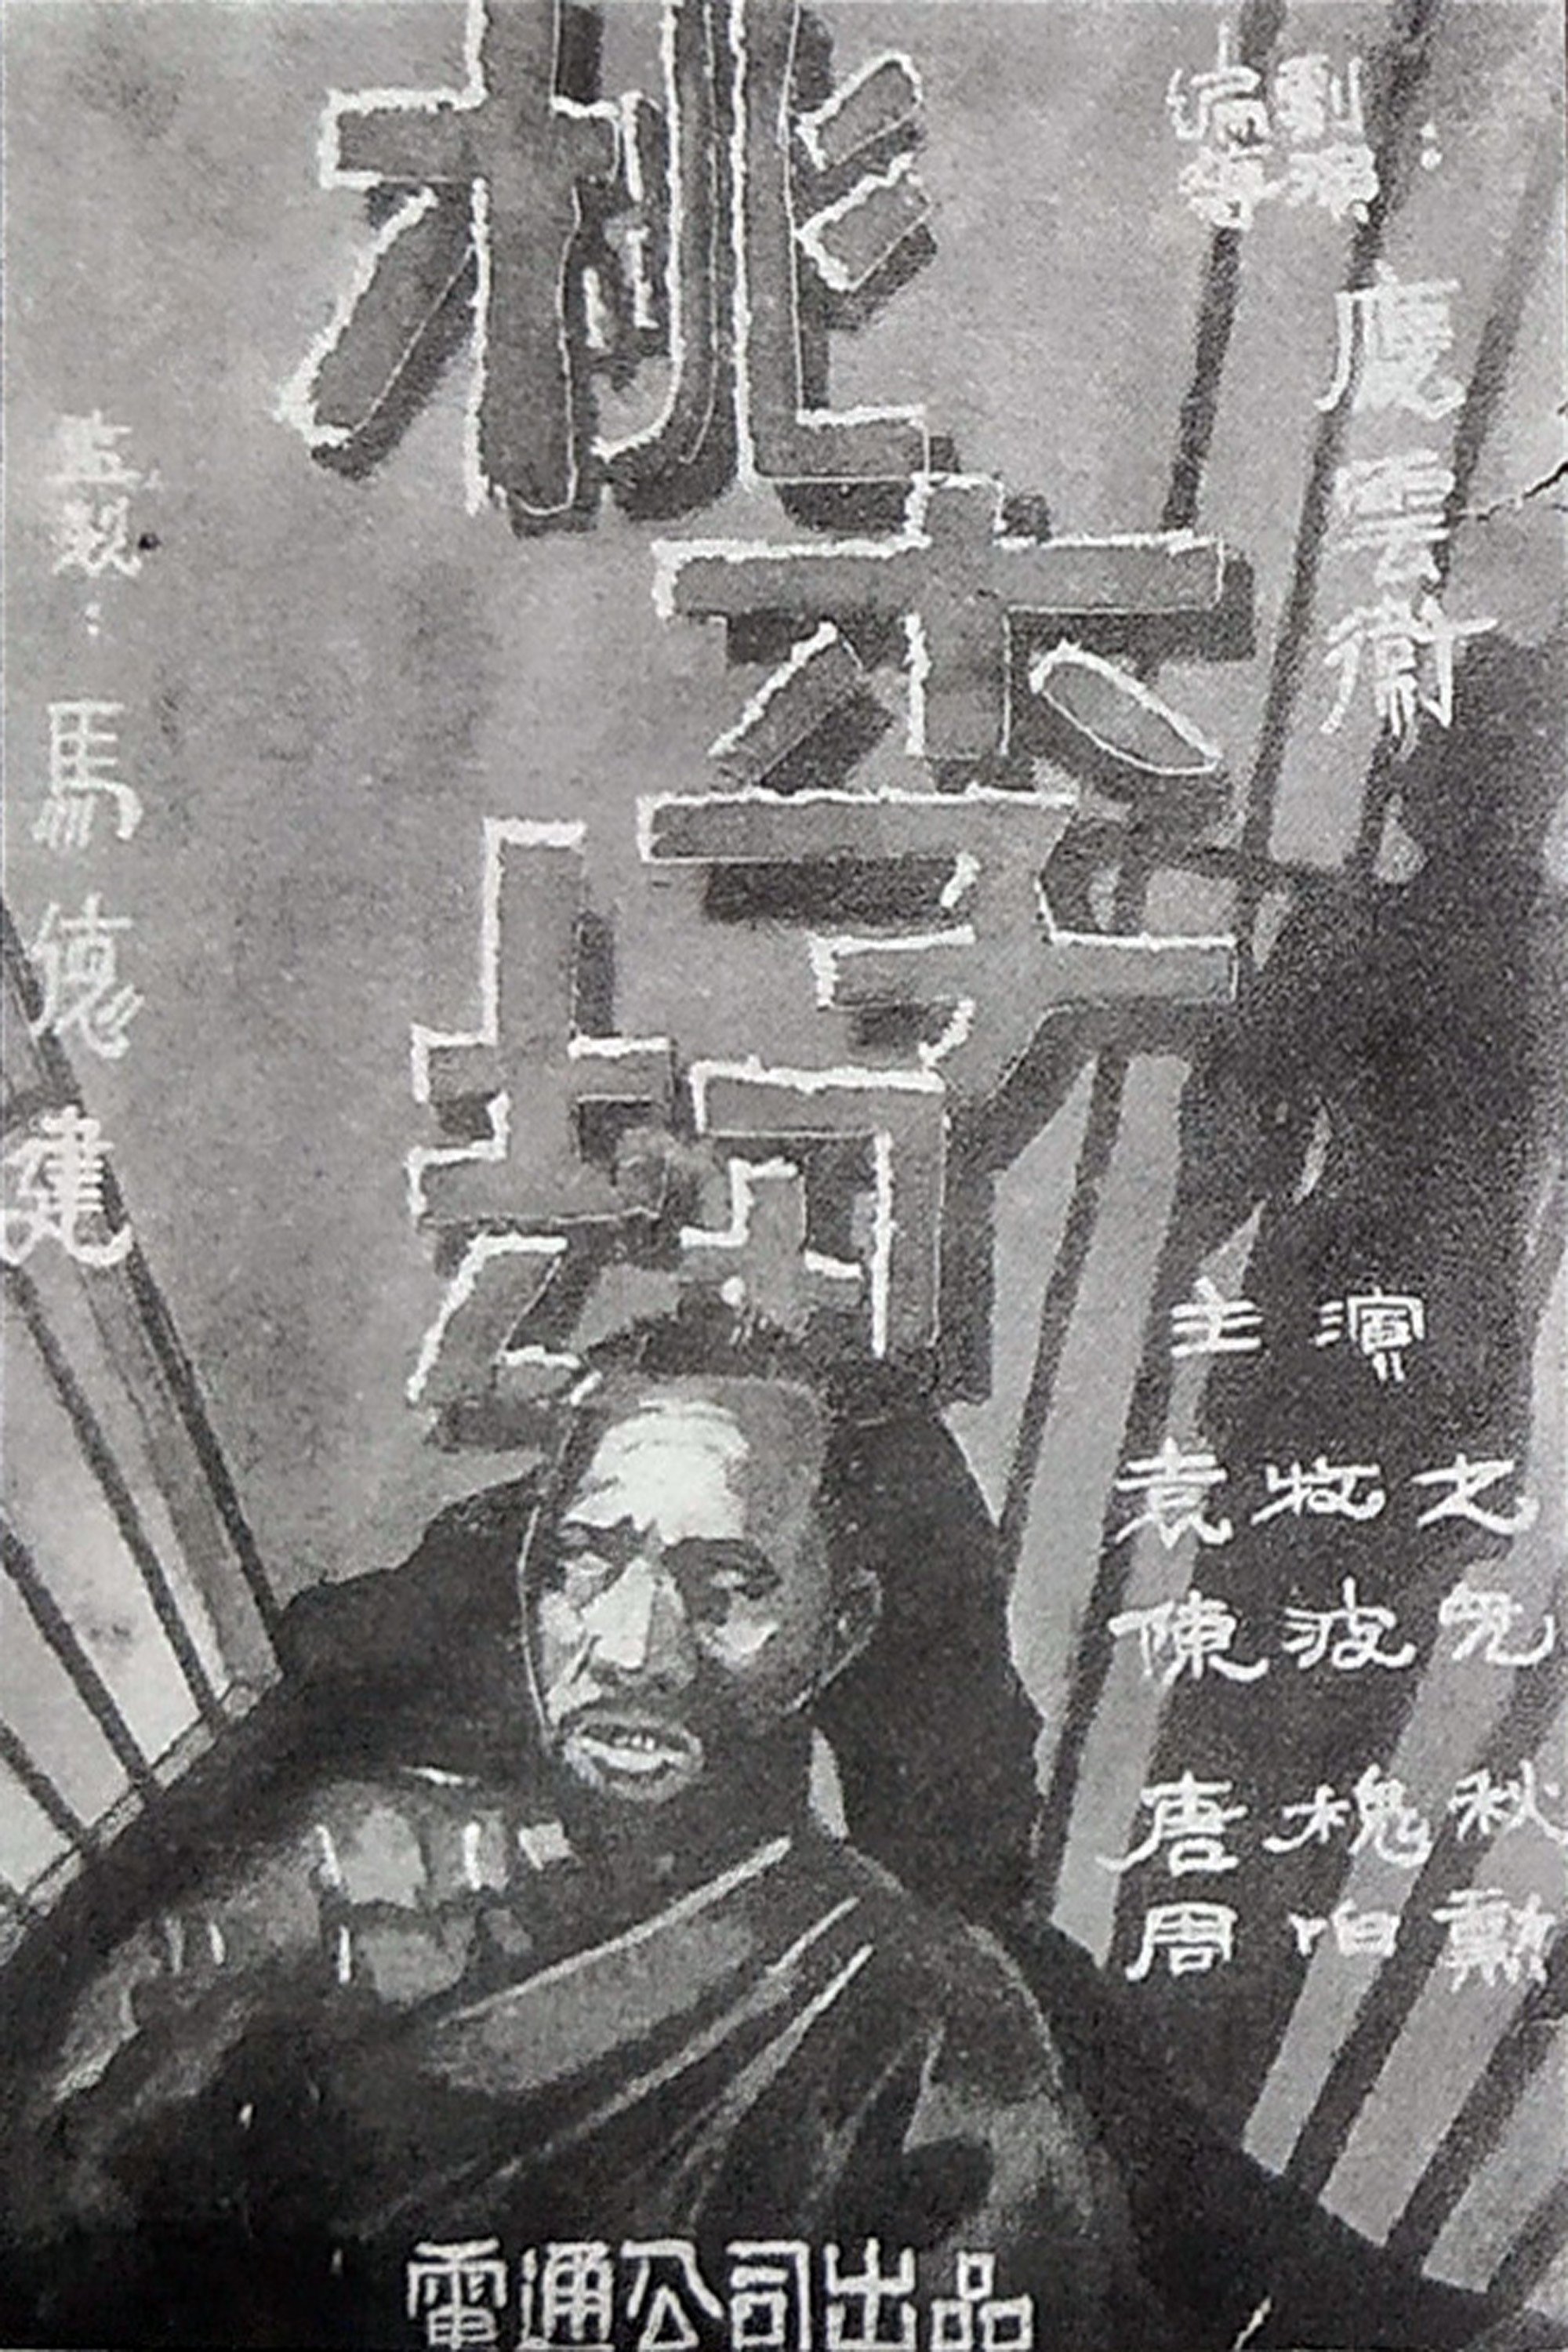 編劇：
導演
應雲衛
桃李劫
馬德建
主演
袁牧之
陳波兒
唐槐秋
周伯勳
電通公司出品